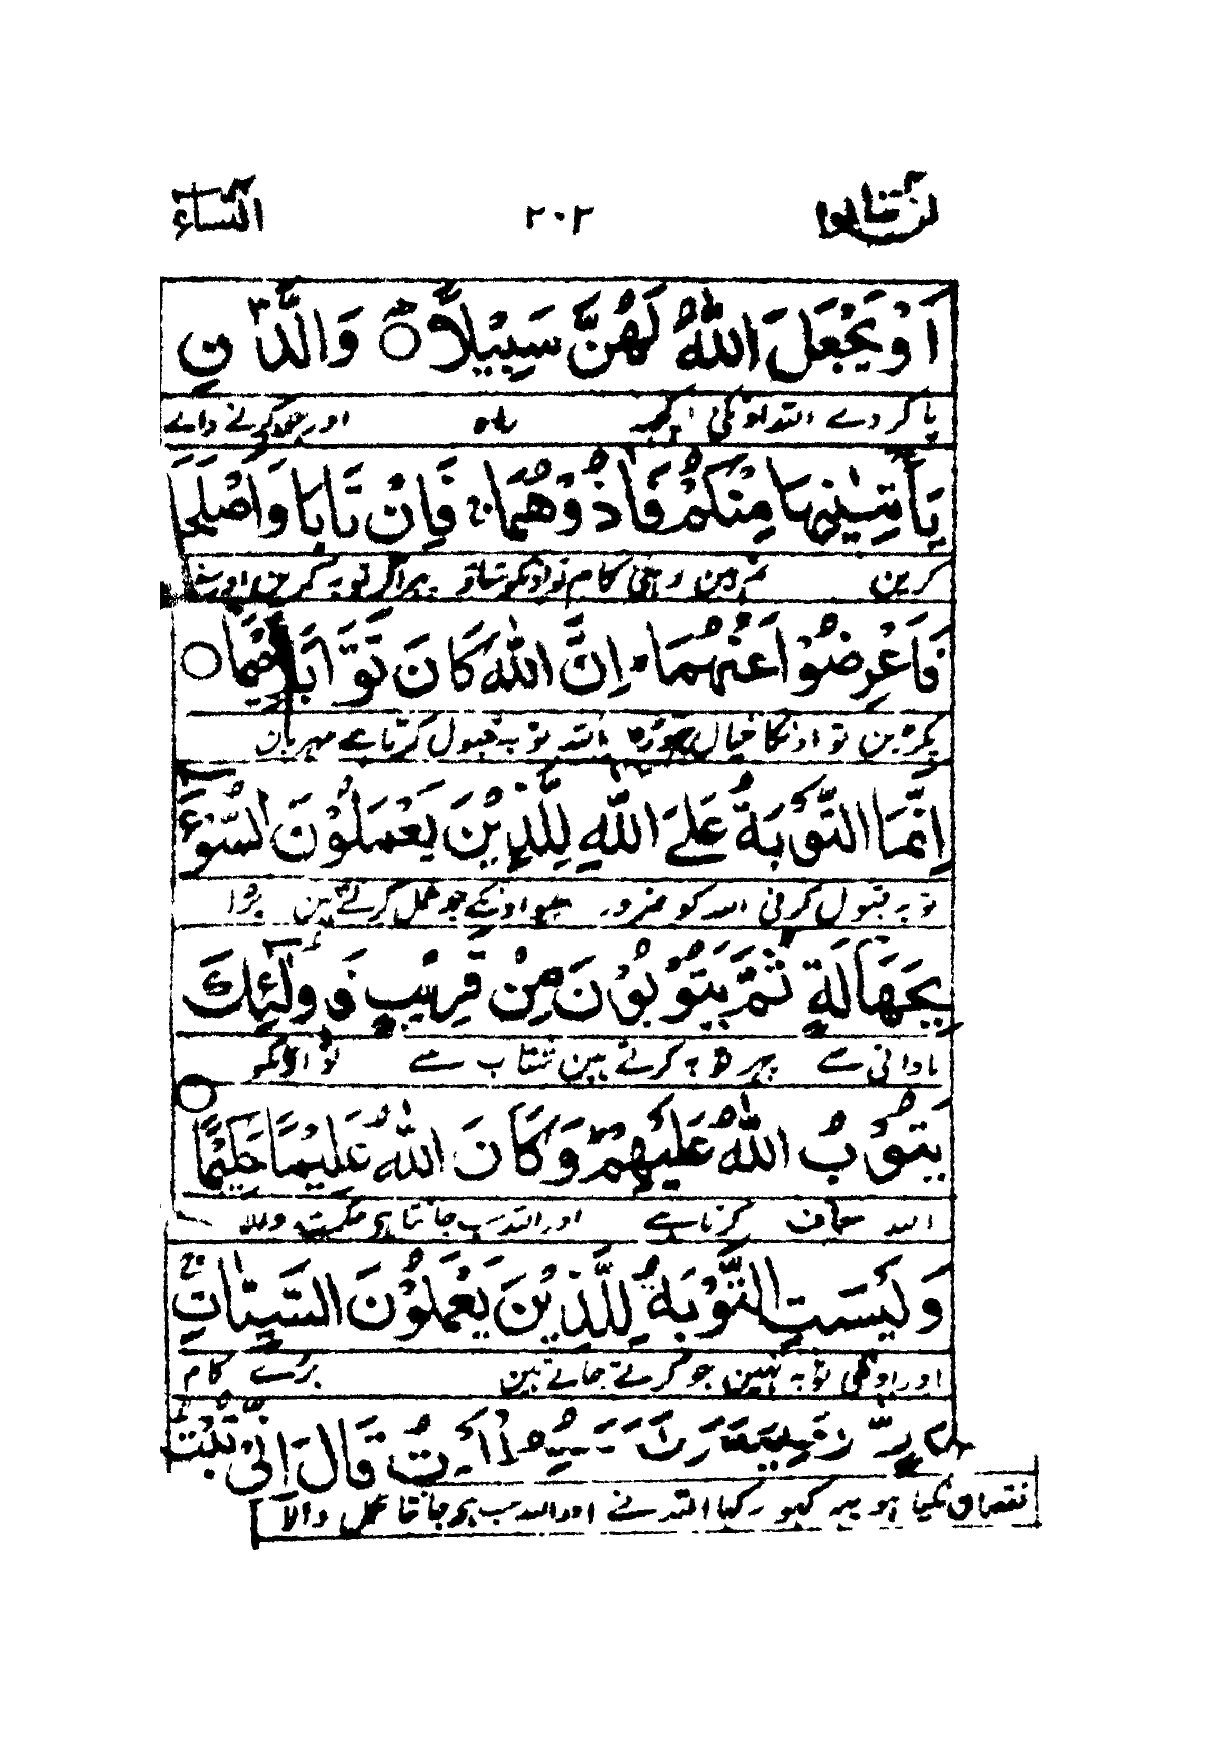 لن تنالوا ۴ ۲۰۲ النساء ۴
اَوْ يَجْعَلَ اللّٰهُ لَهُنَّ سَبِيْلًا ○ وَالَّذٰنِ
یا کر دے اللہ اونکی راہ اور جو کرنے والے
يَاْتِيٰنِهَا مِنْكُمْ فَاٰذُوْهُمَا ۚ فَاِنْ تَابَا وَاَصْلَحَا
کرین تم مین کام تو اونکو ستاؤ پہر اگر توبہ کرین اور
فَاَعْرِضُوْا عَنْهُمَا ؕ اِنَّ اللّٰهَ كَانَ تَوَّابًا رَّحِيْمًا ○
پکڑین تو اونکا خیال چھوڑو اللہ توبہ قبول کرتا ہے مہربان
اِنَّمَا التَّوْبَةُ عَلَى اللّٰهِ لِلَّذِيْنَ يَعْمَلُوْنَ السُّوْٓءَ
توبہ قبول کرنی اللہ کو ضرور اونکے جو عمل کرتے ہین برا
بِجَهَالَةٍ ثُمَّ يَتُوْبُوْنَ مِنْ قَرِيْبٍ فَاُولٰٓئِكَ
نادانی سے پہر توبہ کرتے ہین شتاب سے تو اونکو
يَتُوْبُ اللّٰهُ عَلَيْهِمْ ؕ وَكَانَ اللّٰهُ عَلِيْمًا حَكِيْمًا ○
اللہ معاف کرتا ہے اور اللہ سب جانتا ہے حکمت والا
وَلَيْسَتِ التَّوْبَةُ لِلَّذِيْنَ يَعْمَلُوْنَ السَّيِّاٰتِ ۚ
اور اونکی توبہ نہین جو کرتے جاتے ہین برے کام
الْمَوْتُ قَالَ اِنِّيْ تُبْتُ
نقصان کیا ہو یہہ رکہا اللہ نے اور اللہ سب جانتا والا